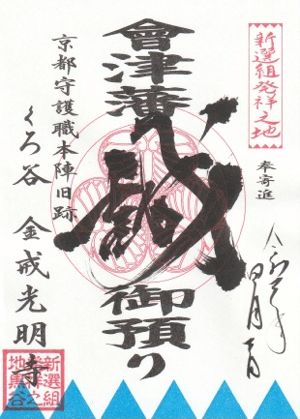 新選組発祥之地
奉寄進
會津藩
誠
御預り
京都守護職本陣旧跡
くろ谷 金戒光明寺
新選組
地黒谷